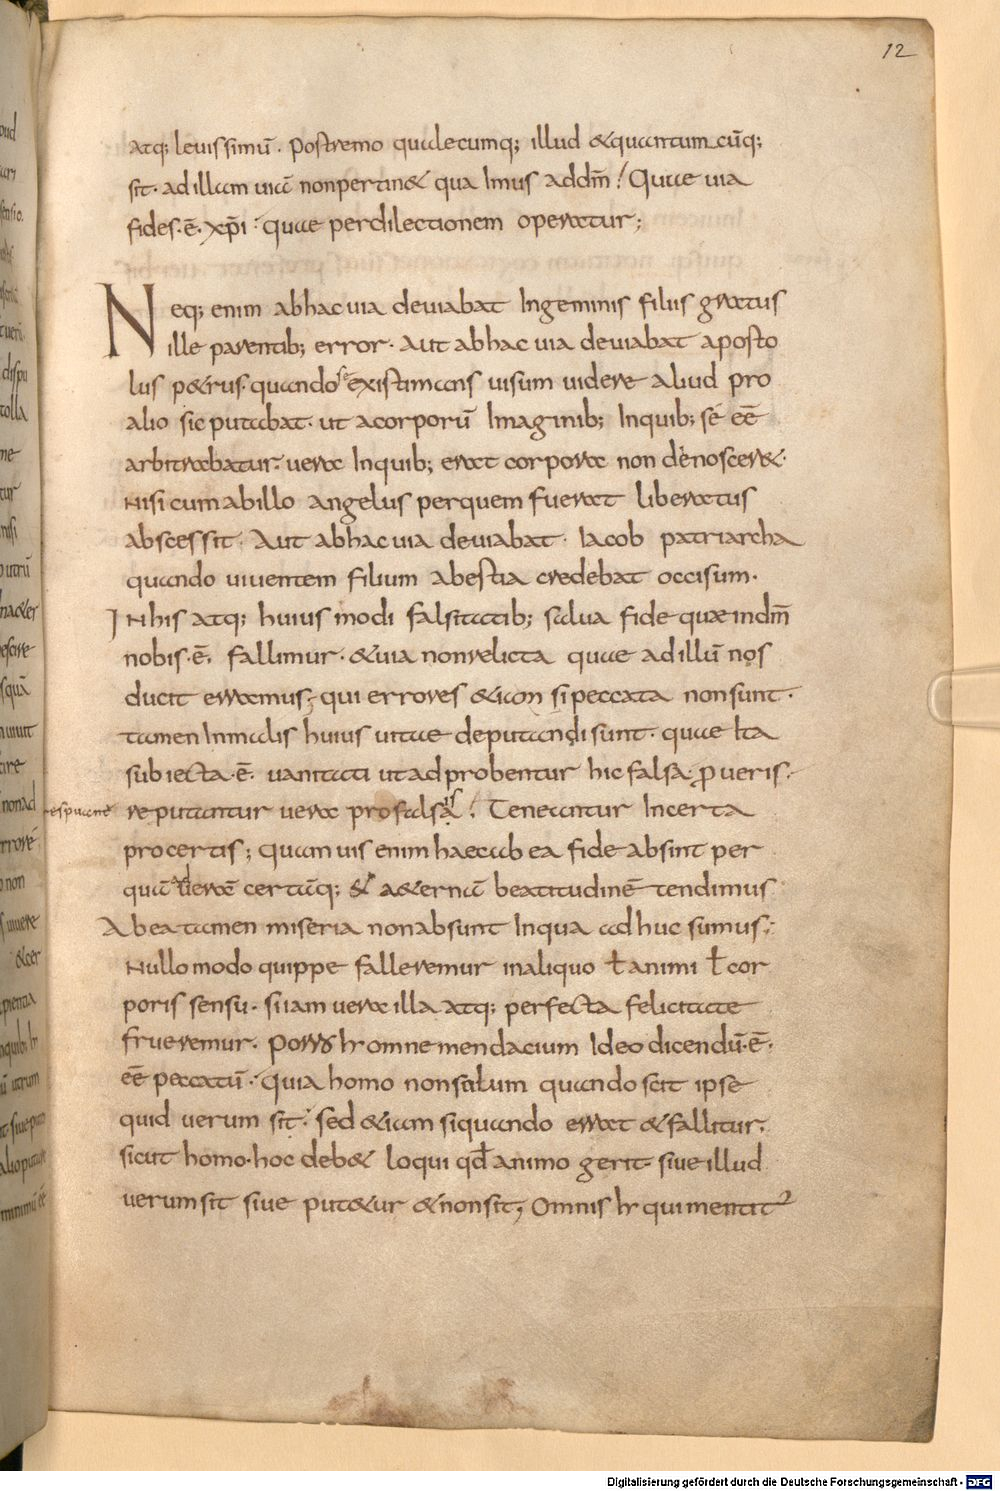 12
atq; leuissimū. Postremo qualecumq; illud &quantum cūq;
sit. ad illam uiā non pertin& qua Imus ad dm̄! Quae uia
fides.ē. xp̄i. quae per dilectionem operatur;
Neq; enim ab hac uia deuiabat In geminis filiis gratus
ille parentib; error. Aut ab hac uia deuiabat aposto
lus p&rus. quando se existimans uisum uidere aliud pro
alio sic putabat. ut a corporū Imaginib; Inquib; se eē
arbitrabatur. uera Inquib; erat corpora non denoscer&.
Nisi cum ab illo angelus per quem fuerat liberatus
abscessit. Aut ab hac uia deuiabat. Iacob patriarcha
quando uiuentem filium a bestia credebat occisum.
In his atq; huius modi falsitatib; salua fide quae in dm̄
nobis.ē. fallimur. &uia non relicta quae ad illū nos
ducit erramus. qui errores &iam si peccata non sunt.
tamen In malis huius uitae deputandi sunt. quae Ita
subiecta.ē. uanitati ut ad probentur hic falsa p̄ ueris.
respuunt̄ reputantur uera pro falsis! Teneantur Incerta
pro certis; quam uis enim haec ab ea fide absint per
quā ad uerā certāq; & a&ernā beatitudinē tendimus
Ab ea tamen miseria non absunt In qua ad huc sumus;
Nullo modo quippe falleremur in aliquo ł animi ł cor
poris sensu. si iam uera illa atq; perfecta felicitate
frueremur. Porro hr omne mendacium Ideo dicendū.ē.
eē peccatū. quia homo non solum quando scit ipse
quid uerum sit. sed &iam si quando errat &fallitur.
sicut homo. hoc deb& loqui qđ animo gerit. siue illud
uerum sit siue put&ur &non sit; Omnis hr qui mentit2
Digitalisierung gefördert durch die Deutsche Forschungsgemeinschaft - DFG